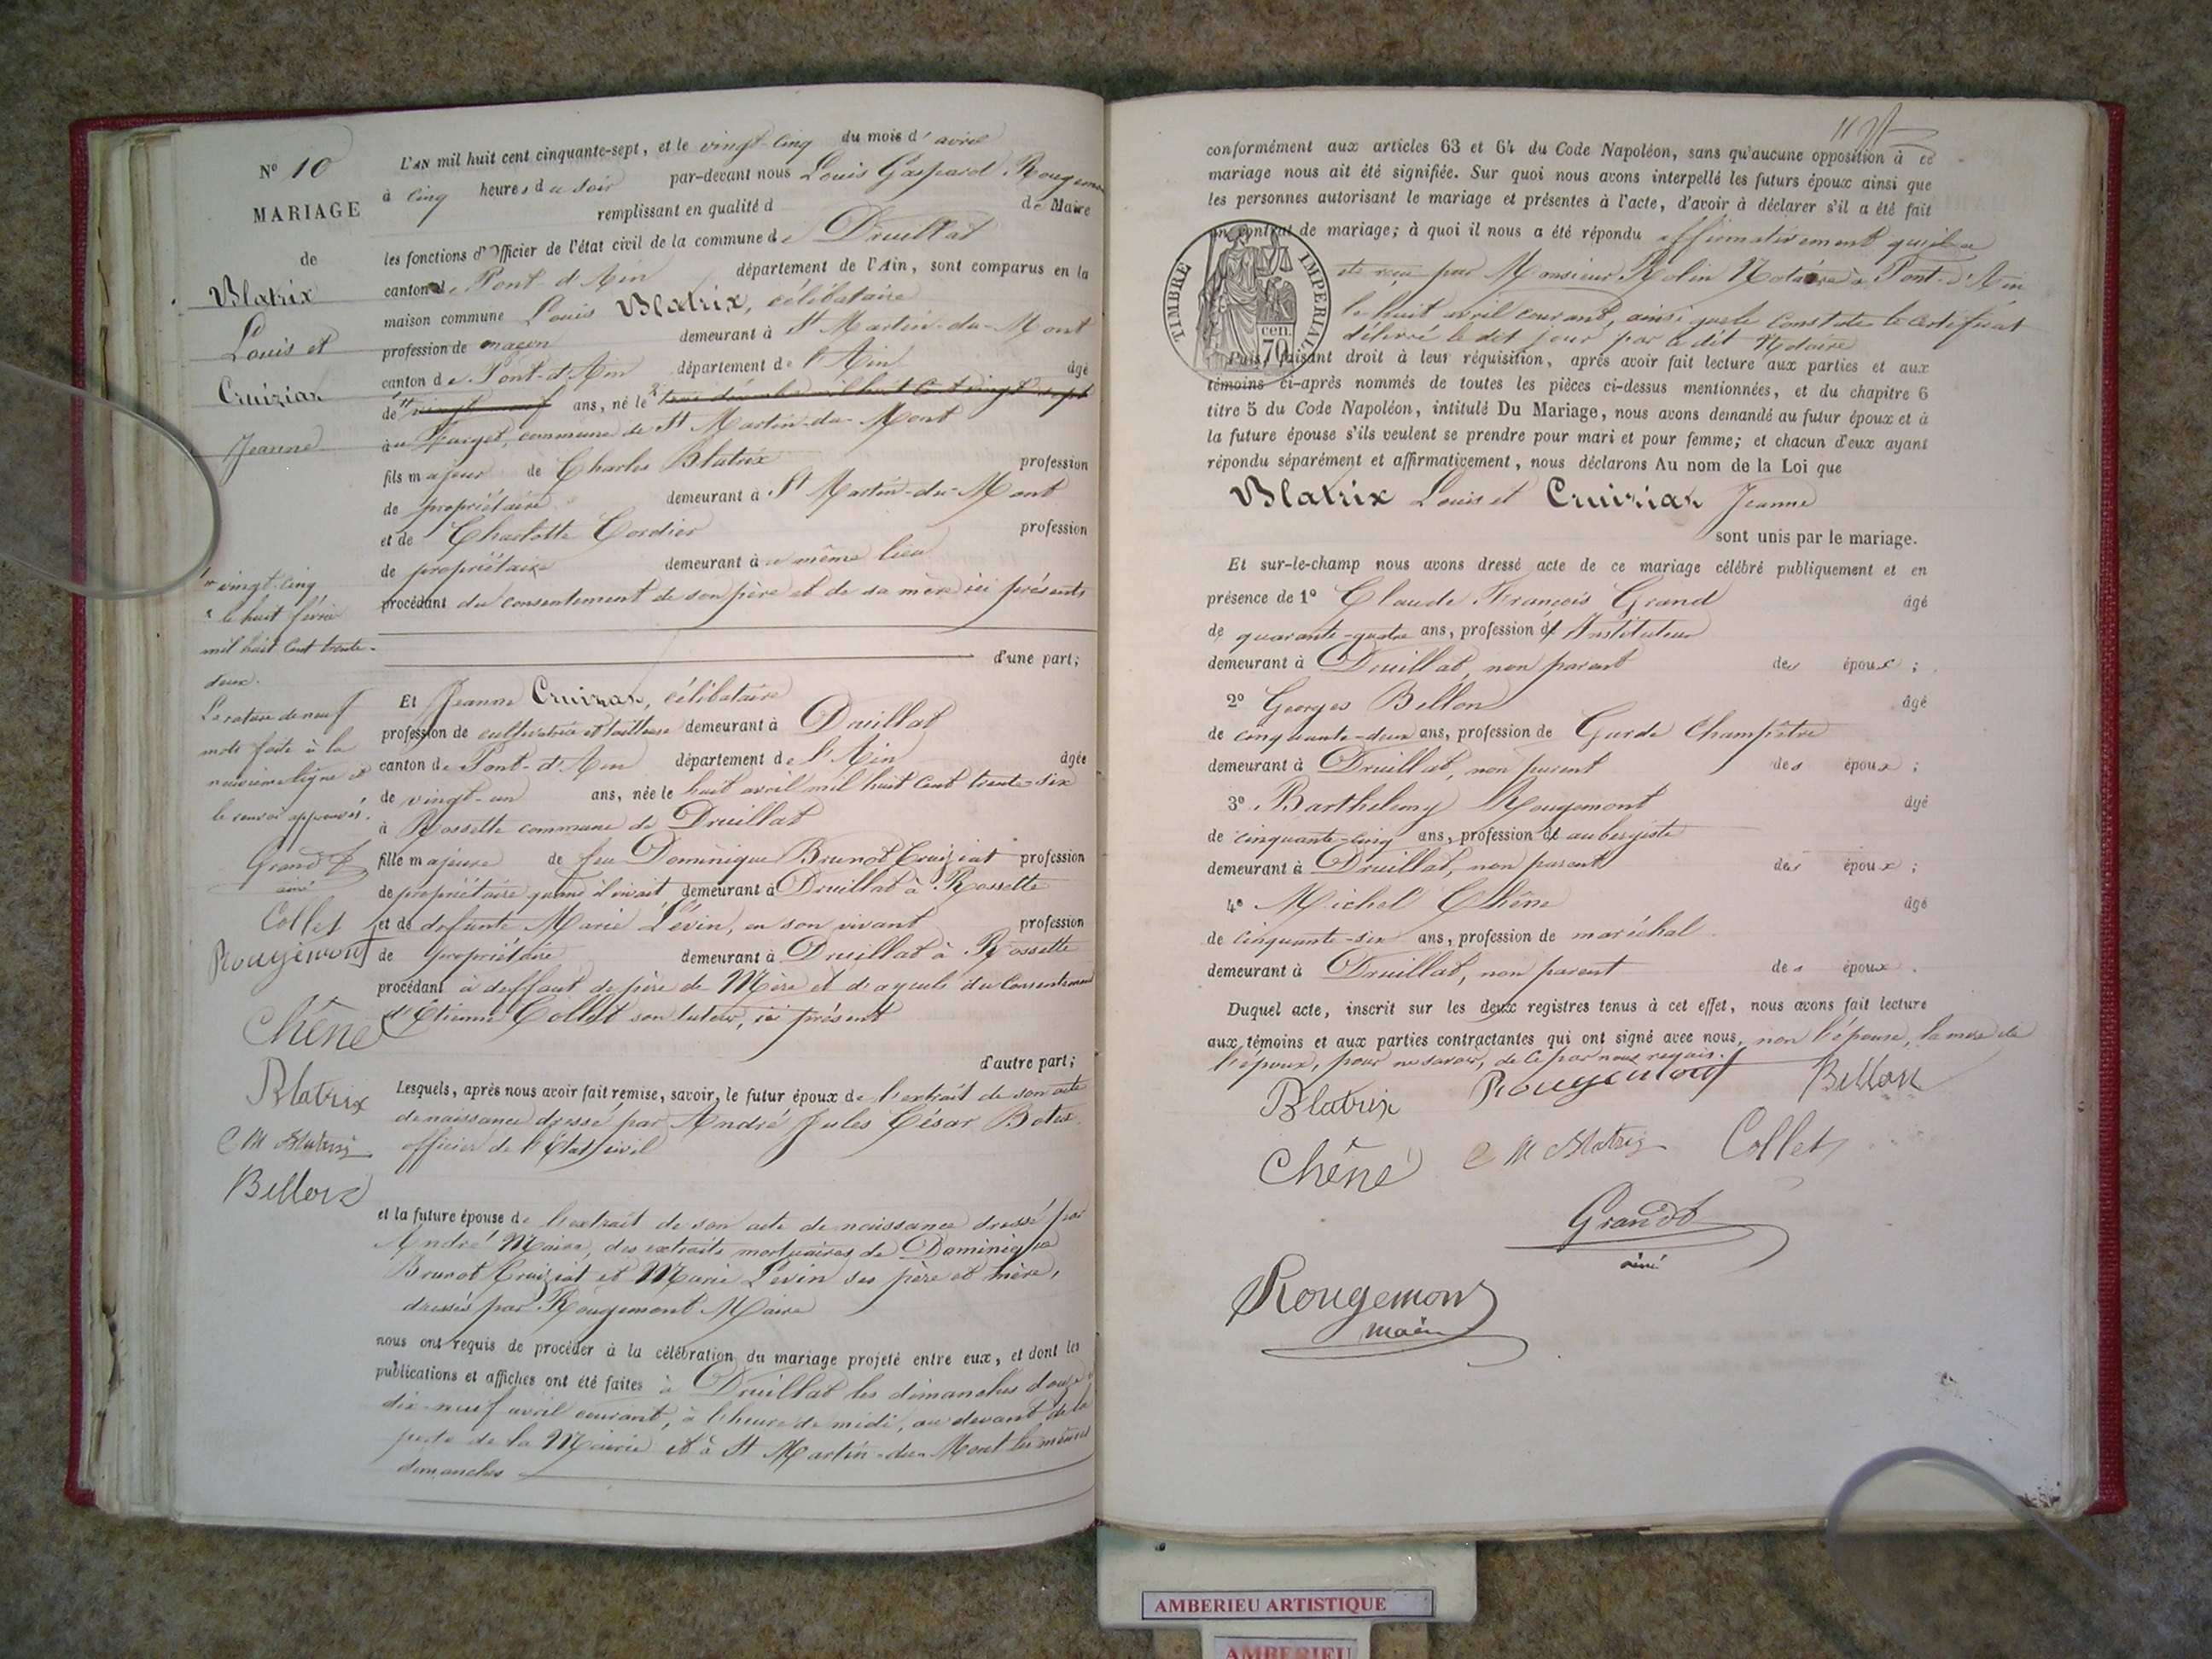 N° 10
MARIAGE
de
Blatrix
Louis et
Cruiziat
Jeanne
1° vingt-cinq
2 le huit février
mil huit cent trente-
deux.
La rature de neuf
mots faite à la
neuvième ligne et
le renvoi approuvés.
Grand
ainé
Collet
Rougemont
Chêne
Blatrix
C M Blatrix
Bellon
L'AN mil huit cent cinquante-sept, et le vingt-cinq du mois d'avril
à cinq heures du soir par-devant nous Louis Gaspard Rougemont
remplissant en qualité d de Maire
les fonctions d'Officier de l'état civil de la commune de Druillat
canton de Pont-d'Ain département de l'Ain, sont comparus en la
maison commune Louis Blatrix, célibataire
profession de maçon demeurant à St Martin-du-Mont
canton de Pont-d'Ain département de l'Ain âgé
de vingt-neuf ans, né le trois décembre mil huit cent vingt-sept
au commune de St Martin-du-Mont
fils majeur de Charles Blatrix profession
de propriétaire demeurant à St Martin-du-Mont
et de Charlotte Cordier profession
de propriétaire demeurant à même lieu
procédant du consentement de son père et de sa mère ici présents
d'une part;
Et Jeanne Cruiziat, célibataire
profession de cultivatrice et tailleuse demeurant à Druillat
canton de Pont-d'Ain département de l'Ain âgée
de vingt-un ans, née le huit avril mil huit cent trente-six
à Rossette commune de Druillat
fille majeure de feu Dominique Brunot Cruiziat profession
de propriétaire quand il vivait demeurant à Druillat à Rossette
et de defunte Marie Levin, en son vivant profession
de propriétaire demeurant à Druillat à Rossette
procédant à deffaut de père de Mère et d'ayeuls du Consentement
d'Etienne Collet son tuteur, ici présent
d'autre part;
Lesquels, après nous avoir fait remise, savoir, le futur époux de l'extrait de son acte
de naissance dressé par André Jules César
officier de l'Etat civil
et la future épouse de l'extrait de son acte de naissance dressé par
André Maire, des extraits mortuaires de Dominique
Brunot Cruiziat et Marie Levin ses père et mère,
dressés par Rougemont Maire
nous ont requis de procéder à la célébration du mariage projeté entre eux, et dont les
publications et affiches ont été faites à Druillat les dimanches douze
dix-neuf avril courant, à l'heure de midi, au devant de la
porte de la Mairie et à St Martin-du-Mont les mêmes
dimanches
conformément aux articles 63 et 64 du Code Napoléon, sans qu'aucune opposition à ce
mariage nous ait été signifiée. Sur quoi nous avons interpellé les futurs époux ainsi que
les personnes autorisant le mariage et présentes à l'acte, d'avoir à déclarer s'il a été fait
un contrat de mariage; à quoi il nous a été répondu affirmativement qu'il a
été reçu par Monsieur Rolin Notaire à Pont-d'Ain
le huit avril courant, ainsi que le constate le certificat
délivré le dit jour par le dit Notaire
TIMBRE IMPERIAL
cen.
70
Puis, faisant droit à leur réquisition, après avoir fait lecture aux parties et aux
témoins ci-après nommés de toutes les pièces ci-dessus mentionnées, et du chapitre 6
titre 5 du Code Napoléon, intitulé Du Mariage, nous avons demandé au futur époux et à
la future épouse s'ils veulent se prendre pour mari et pour femme; et chacun d'eux ayant
répondu séparément et affirmativement, nous déclarons Au nom de la Loi que
Blatrix Louis et Cruiziat Jeanne
sont unis par le mariage.
Et sur-le-champ nous avons dressé acte de ce mariage célébré publiquement et en
présence de 1° Claude François Grand âgé
de quarante-quatre ans, profession d'Instituteur
demeurant à Druillat, non parent des époux;
2° Georges Bellon âgé
de cinquante-deux ans, profession de Garde Champêtre
demeurant à Druillat, non parent des époux;
3° Barthelemy Rougemont âgé
de cinquante-cinq ans, profession de aubergiste
demeurant à Druillat, non parent des époux;
4° Michel Chêne âgé
de cinquante-six ans, profession de maréchal
demeurant à Druillat, non parent des époux.
Duquel acte, inscrit sur les deux registres tenus à cet effet, nous avons fait lecture
aux témoins et aux parties contractantes qui ont signé avec nous, non l'épouse, la mère de
l'époux, pour ne savoir, de ce par nous requis.
Blatrix Rougemont Bellon
Chêne C M Blatrix Collet
Grand
ainé
Rougemont
maire
AMBERIEU ARTISTIQUE
AMBERIEU